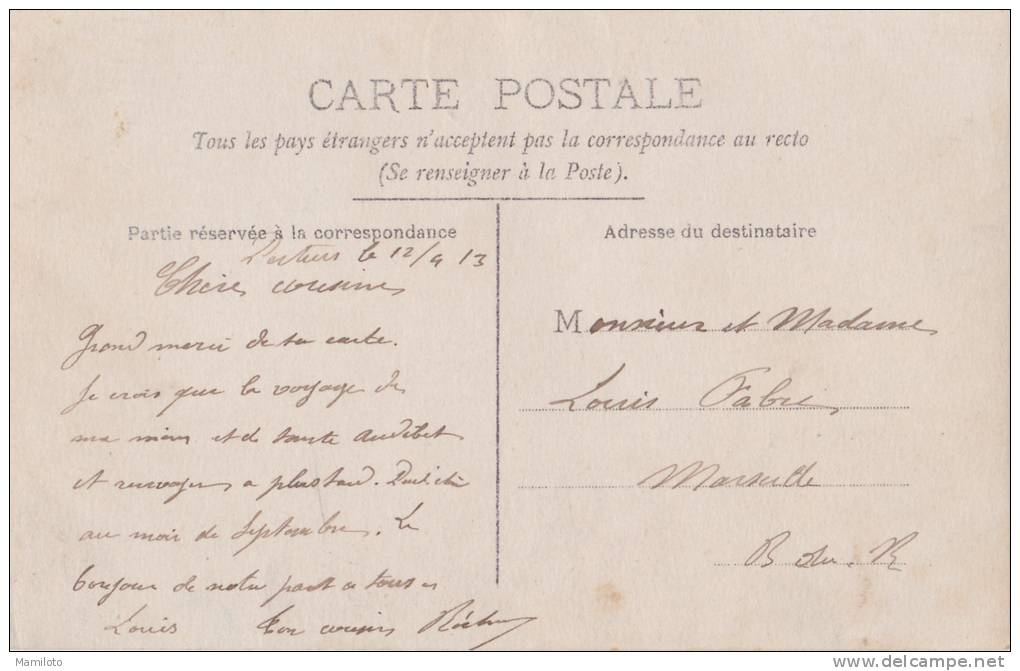 CARTE POSTALE
Tous les pays étrangers n'acceptent pas la correspondance au recto
(Se renseigner à la Poste).
Partie réservée à la correspondance
Adresse du destinataire
le 12/9 13
Chère cousine
Grand merci de ta carte.
Je crois que le voyage de
ma mère et de tante Audibet
et renvoyer a plus tard.
au moi de Septembre. Le
bonjour de notre part a tous
Louis Ton cousin
Monsieur et Madame
Louis Fabre
Marseille
B du. R
Mamiloto
www.delcampe.net